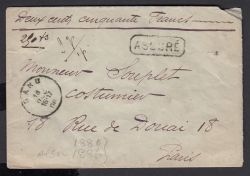 Deux cents cinquante Francs
ASSURÉ
Monsieur Souplet
costumier
18 Rue de Douai 18
Paris